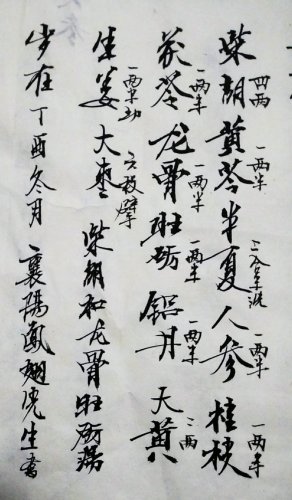 柴胡四两黄芩一两半半夏二合半洗人参一两半桂枝一两半
茯苓一两半龙骨一两半牡砺一两半铅丹一两半大黄二两
生姜一两半切大枣六枚擘柴胡和龙骨牡砺汤
岁在丁酉冬月襄阳凤翅先生书